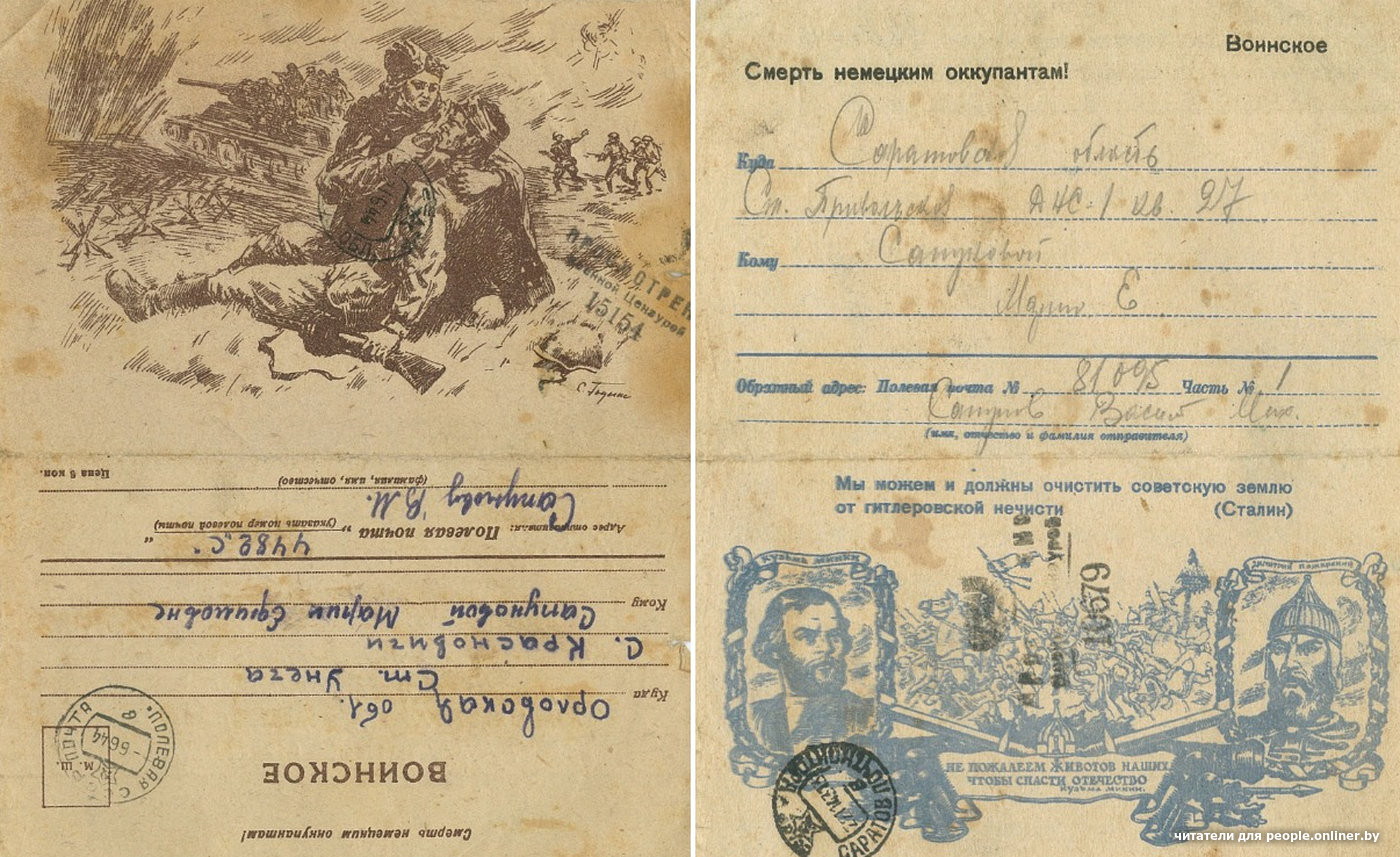 С. Годына
ПРОСМОТРЕНО
Военной Цензурой
15154
Смерть немецким оккупантам!
ВОИНСКОЕ
М. Ш.
ПОЛЕВАЯ
ПОЧТА
-6644
Куда Орловская обл.
Ст. Унеча
С. Красновичи
Кому Сапуновой Марии Ефимовне
4482 "С"
Адрес отправителя: Полевая почта " "
(Указать номер полевой почты)
Сапунову В. М.
(фамилия, имя, отчество)
Цена 5 коп.
Воинское
Смерть немецким оккупантам!
Куда Саратовская область
Ст. Привольская ДНС-1 кв. 27
Кому Сапуновой
Марии Е
Обратный адрес: Полевая почта № 81095 Часть № 1
Сапунов Васил Мих.
(имя, отчество и фамилия отправителя)
Мы можем и должны очистить советскую землю
от гитлеровской нечисти (Сталин)
КУЗЬМА МИНИН
ДМИТРИЙ ПОЖАРСКИЙ
10679
НЕ ПОЖАЛЕЕМ ЖИВОТОВ НАШИХ,
ЧТОБЫ СПАСТИ ОТЕЧЕСТВО
КУЗЬМА МИНИН.
САРАТОВ
читатели для people.onliner.by